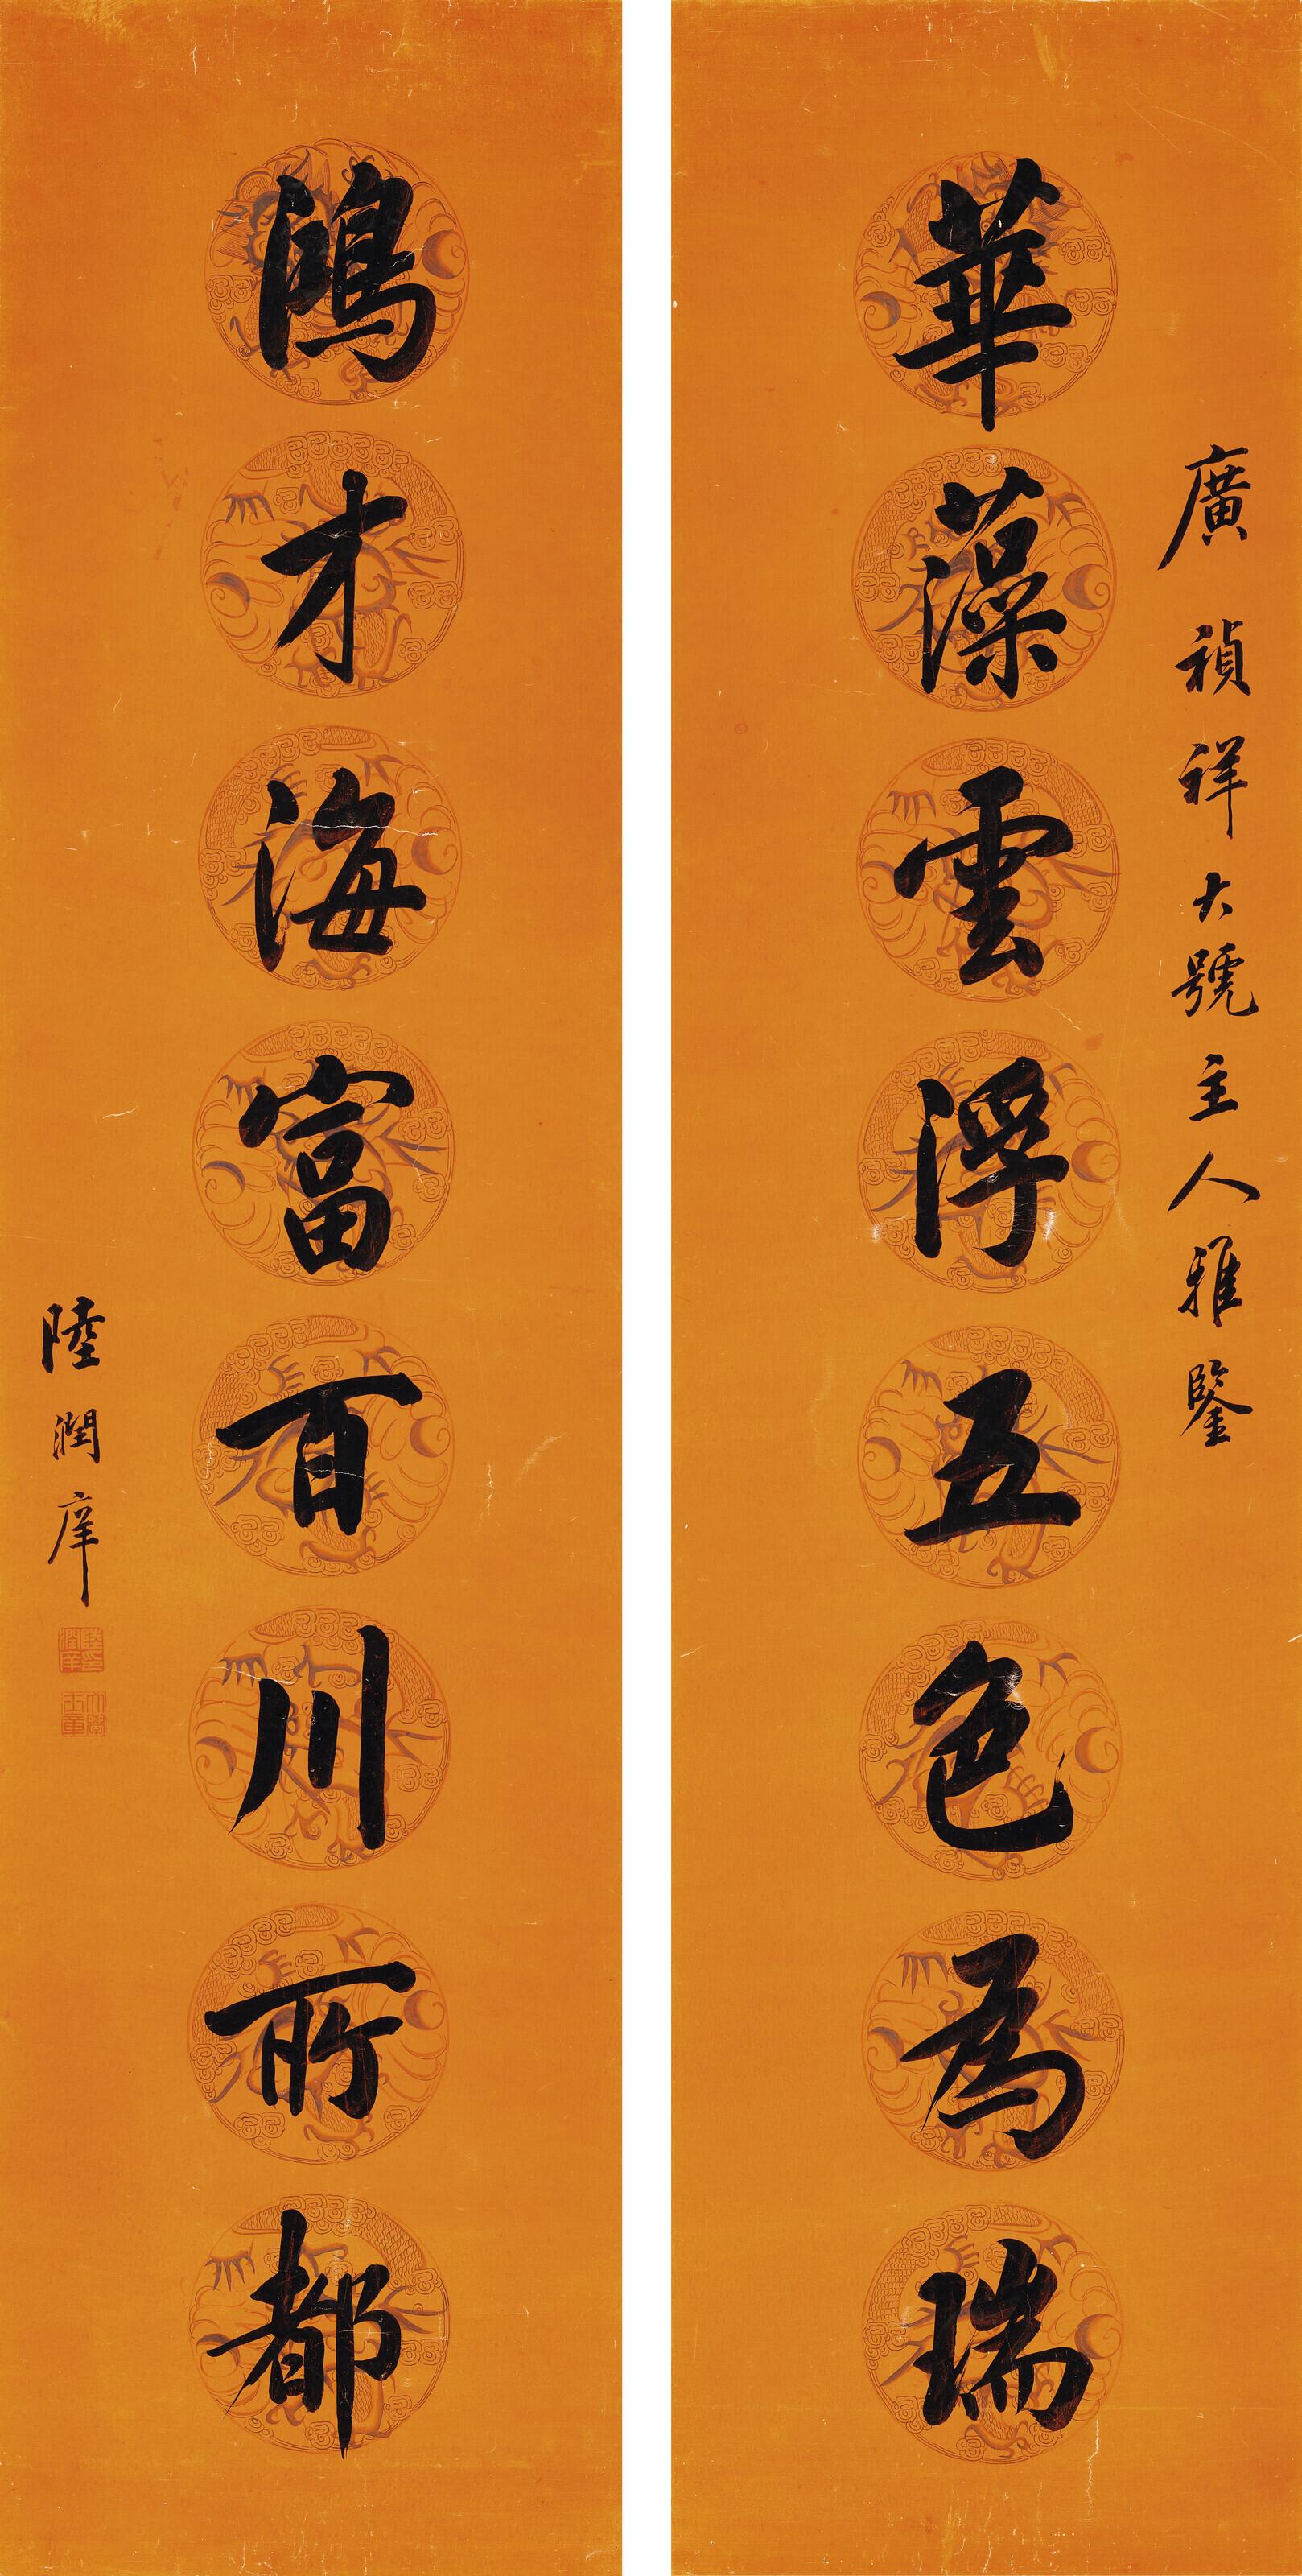 廣禎祥大號主人雅鑒
華藻雲浮五色為瑞
鴻才海富百川所都
陸潤庠